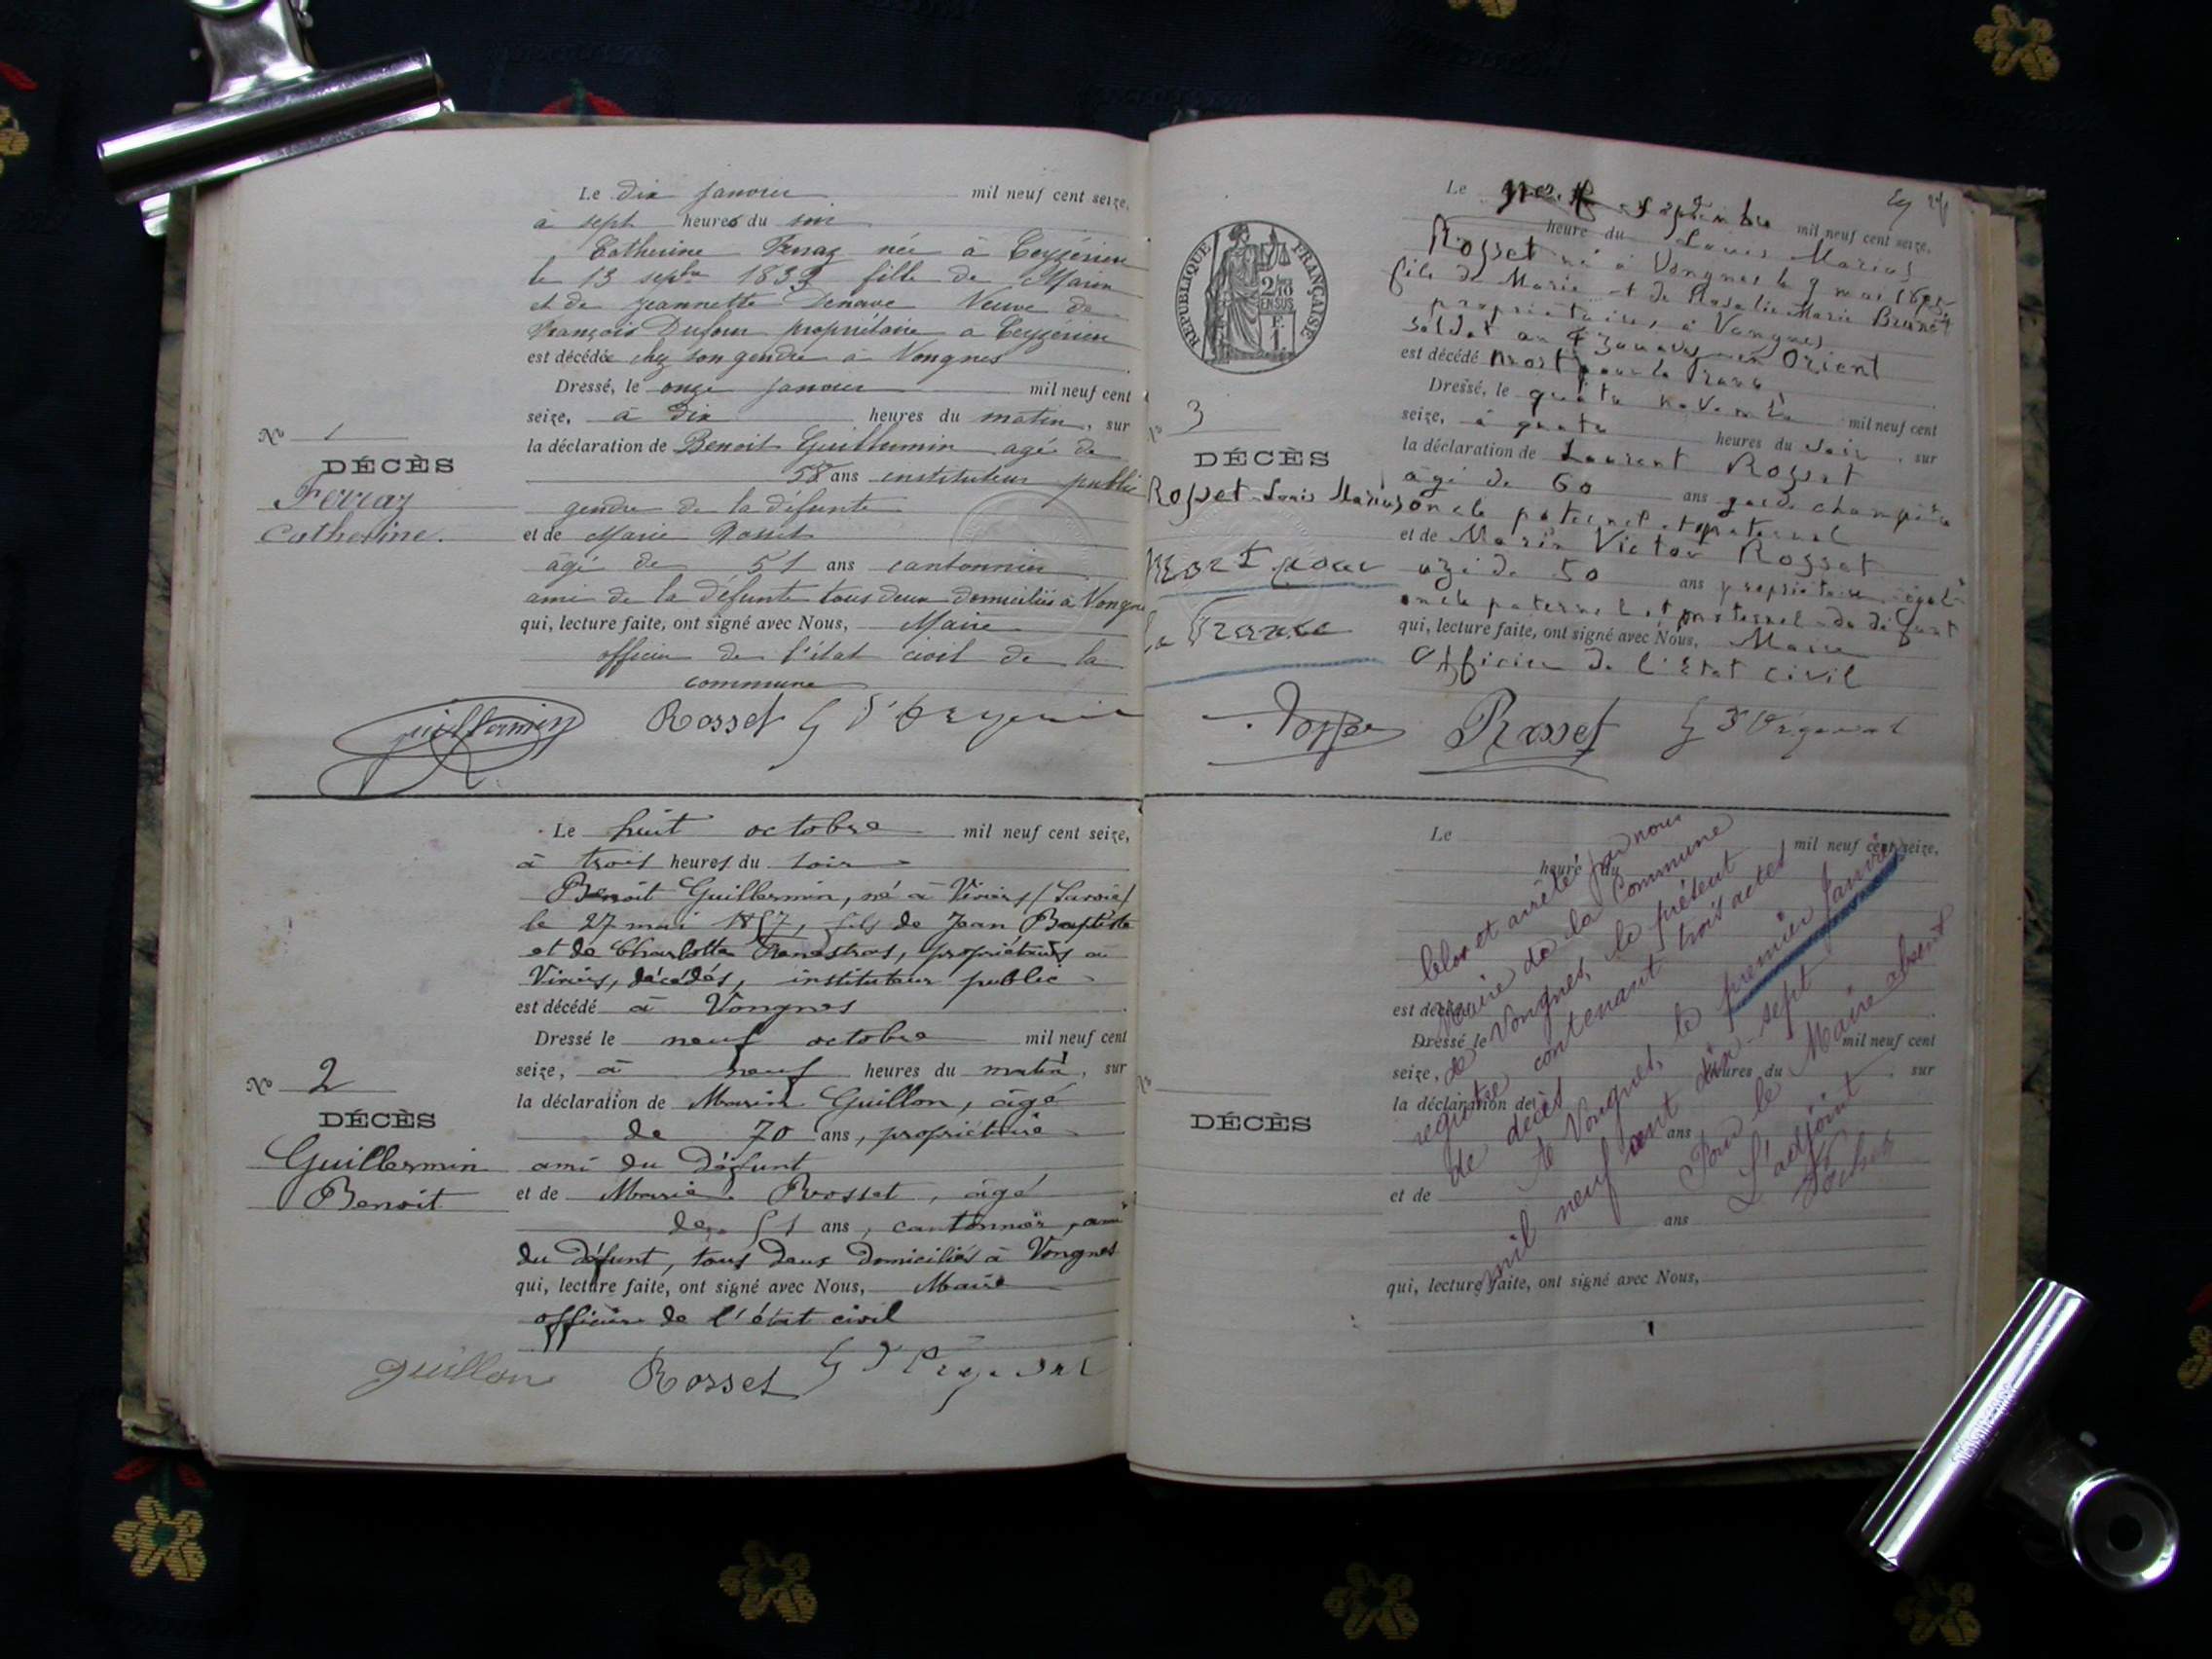 Le dix janvier mil neuf cent seize,
à sept heures du soir
Catherine Ferraz née à Ceyzérieu
le 13 sepbre 183 fille de Marin
et de Jeannette Denave Veuve de
François Dufour propriétaire à Ceyzérieu
est décédée chez son gendre à Vongnes
Dressé, le onze janvier mil neuf cent
seize, à dix heures du matin, sur
la déclaration de Benoit Guillermin agé de
58 ans instituteur public
gendre de la défunte
et de Marie Rosset
âgé de 51 ans cantonnier
ami de la défunte tous deux domiciliés à Vongnes
qui, lecture faite, ont signé avec Nous, Maire
officier de l'état civil de la
commune
No 1
DÉCÈS
Ferraz
Catherine.
Guillermin Rosset
Le huit octobre mil neuf cent seize,
à trois heures du soir
Benoit Guillermin, né à Viviers (Savoie)
le 27 mai 1857, fils de Jean Baptiste
et de Charlotte propriétaires à
Viviers, décédés, instituteur public
est décédé à Vongnes
Dressé le neuf octobre mil neuf cent
seize, à neuf heures du matin, sur
la déclaration de Marin Guillon, âgé
de 70 ans, propriétaire
ami du défunt
et de Marie Rosset, âgé
de 51 ans, cantonnier, ami
du défunt, tous deux domiciliés à Vongnes
qui, lecture faite, ont signé avec Nous, Maire
officier de l'état civil
No 2
DÉCÈS
Guillermin
Benoit
Guillon Rosset
RÉPUBLIQUE FRANÇAISE
2/10
EN SUS
F.
1.
Le septembre mil neuf cent seize,
heure du Louis Marius
Rosset né à Vongnes le 9 mai
fils de Marie et de Rosalie Marie Brunet
propriétaires à Vongnes
soldat au 4 zouaves en Orient
est décédé mort pour la France
Dressé, le quatre novembre mil neuf cent
seize, à quatre heures du soir, sur
la déclaration de Laurent Rosset
âgé de 60 ans garde champêtre
oncle paternel et maternel
et de Marin Victor Rosset
âgé de 50 ans propriétaire
oncle paternel et maternel du défunt
qui, lecture faite, ont signé avec Nous, Maire
Officier de l'Etat civil
No 3
DÉCÈS
Rosset Louis Marius
Mort pour
la France
Rosset
Le mil neuf cent seize,
heure du
est décédé
Dressé le mil neuf cent
seize, heures du , sur
la déclaration de
ans
et de
ans
qui, lecture faite, ont signé avec Nous,
No
DÉCÈS
Clos et arrêté par nous
Maire de la Commune
de Vongnes, le présent
registre contenant trois actes
de décès
A Vongnes, le premier janvier
mil neuf cent dix-sept
Pour le Maire absent
L'adjoint